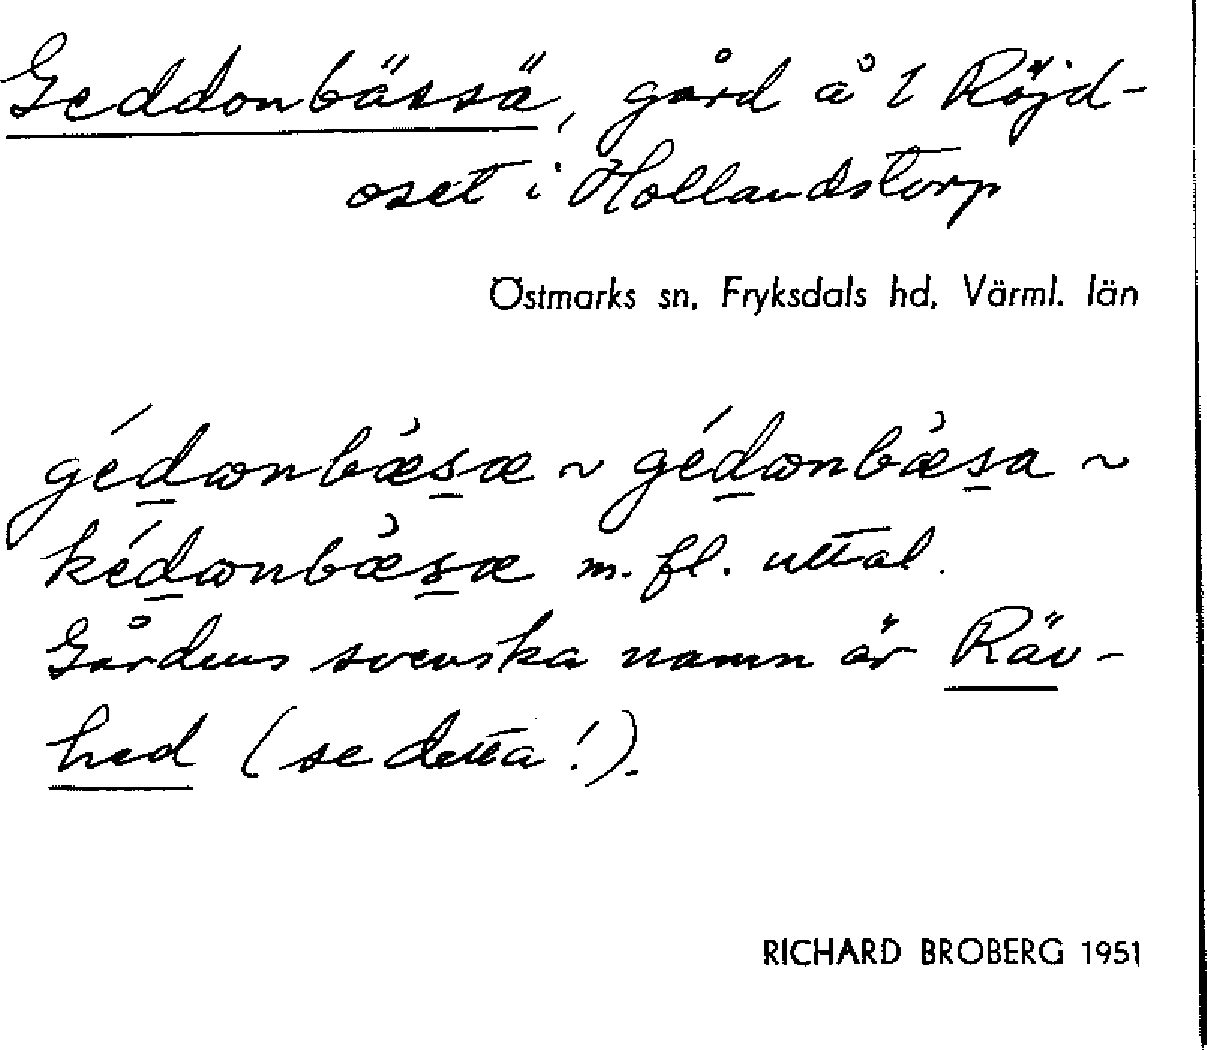 Geddonbässä, gård å 1 Röjd-
oset i Hollandstorp
Östmarks sn, Fryksdals hd, Värml. län
gédωnbæ̀sæ ~ gédωnbæ̀sa ~
kédωnbæ̀sæ m. fl. uttal.
Gårdens svenska namn är Räv-
hed (se detta!).
RICHARD BROBERG 1951